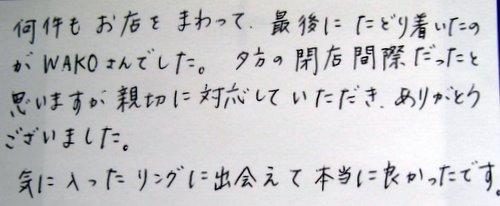 何件も お店を まわって、最後に たどり着いたの
が WAKO さんでした。 夕方の 閉店間際だったと
思いますが 親切に 対応して いただき、ありがとう
ございました。
気に入った リングに 出会えて 本当に 良かったです。